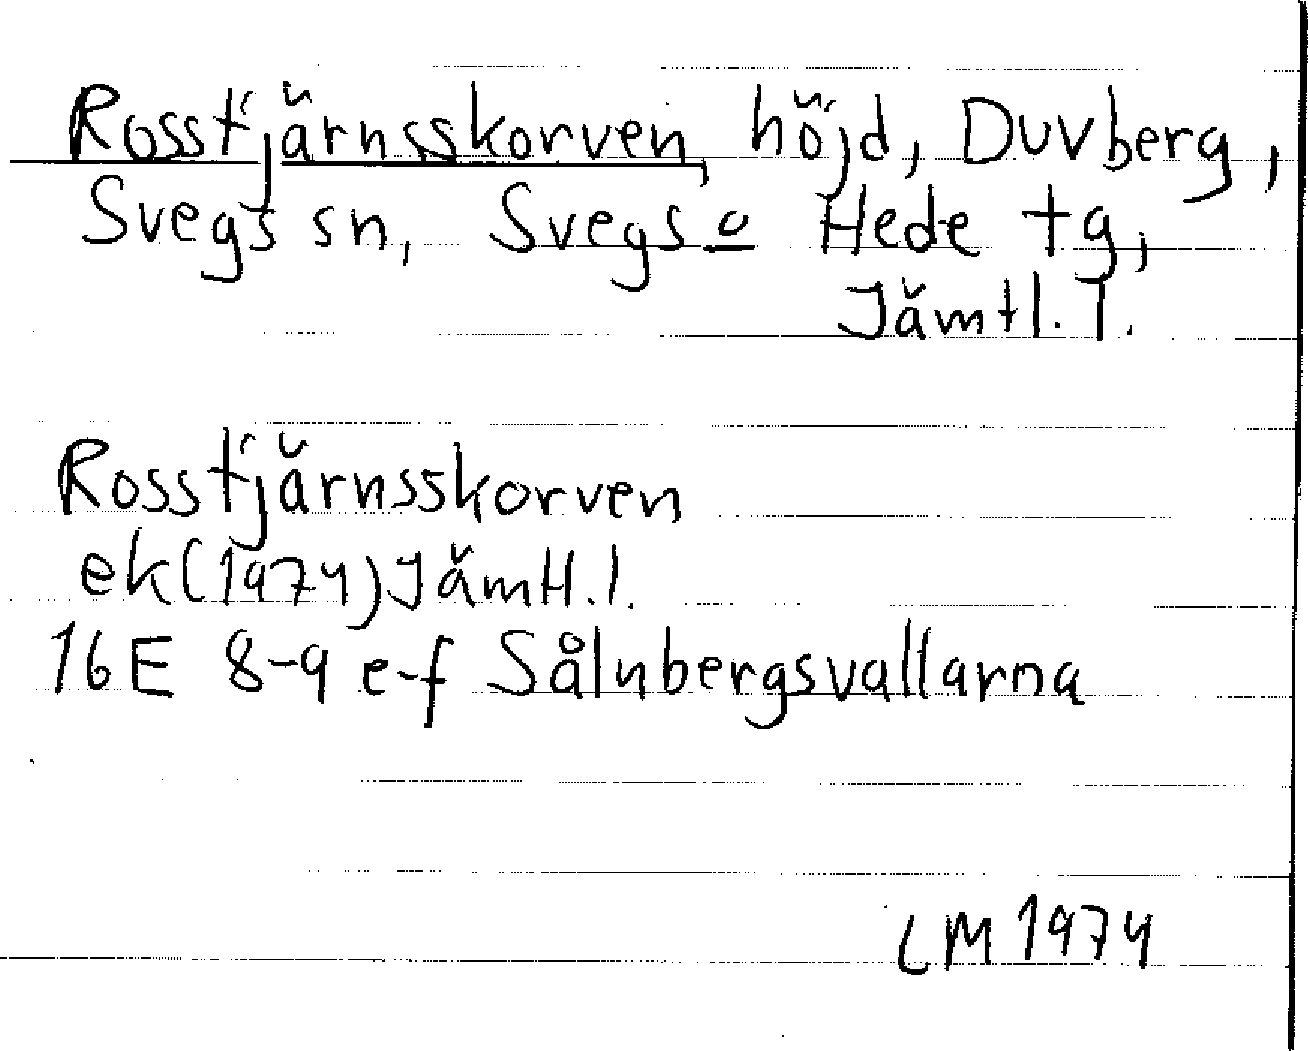 Rosstjärnsskorven, höjd, Duvberg,
Svegs sn, Svegs o Hede tg,
Jämtl. l.
Rosstjärnsskorven
ek(1974)Jämtl.l.
16E 8-9 e-f Sålnbergsvallarna
LM 1974